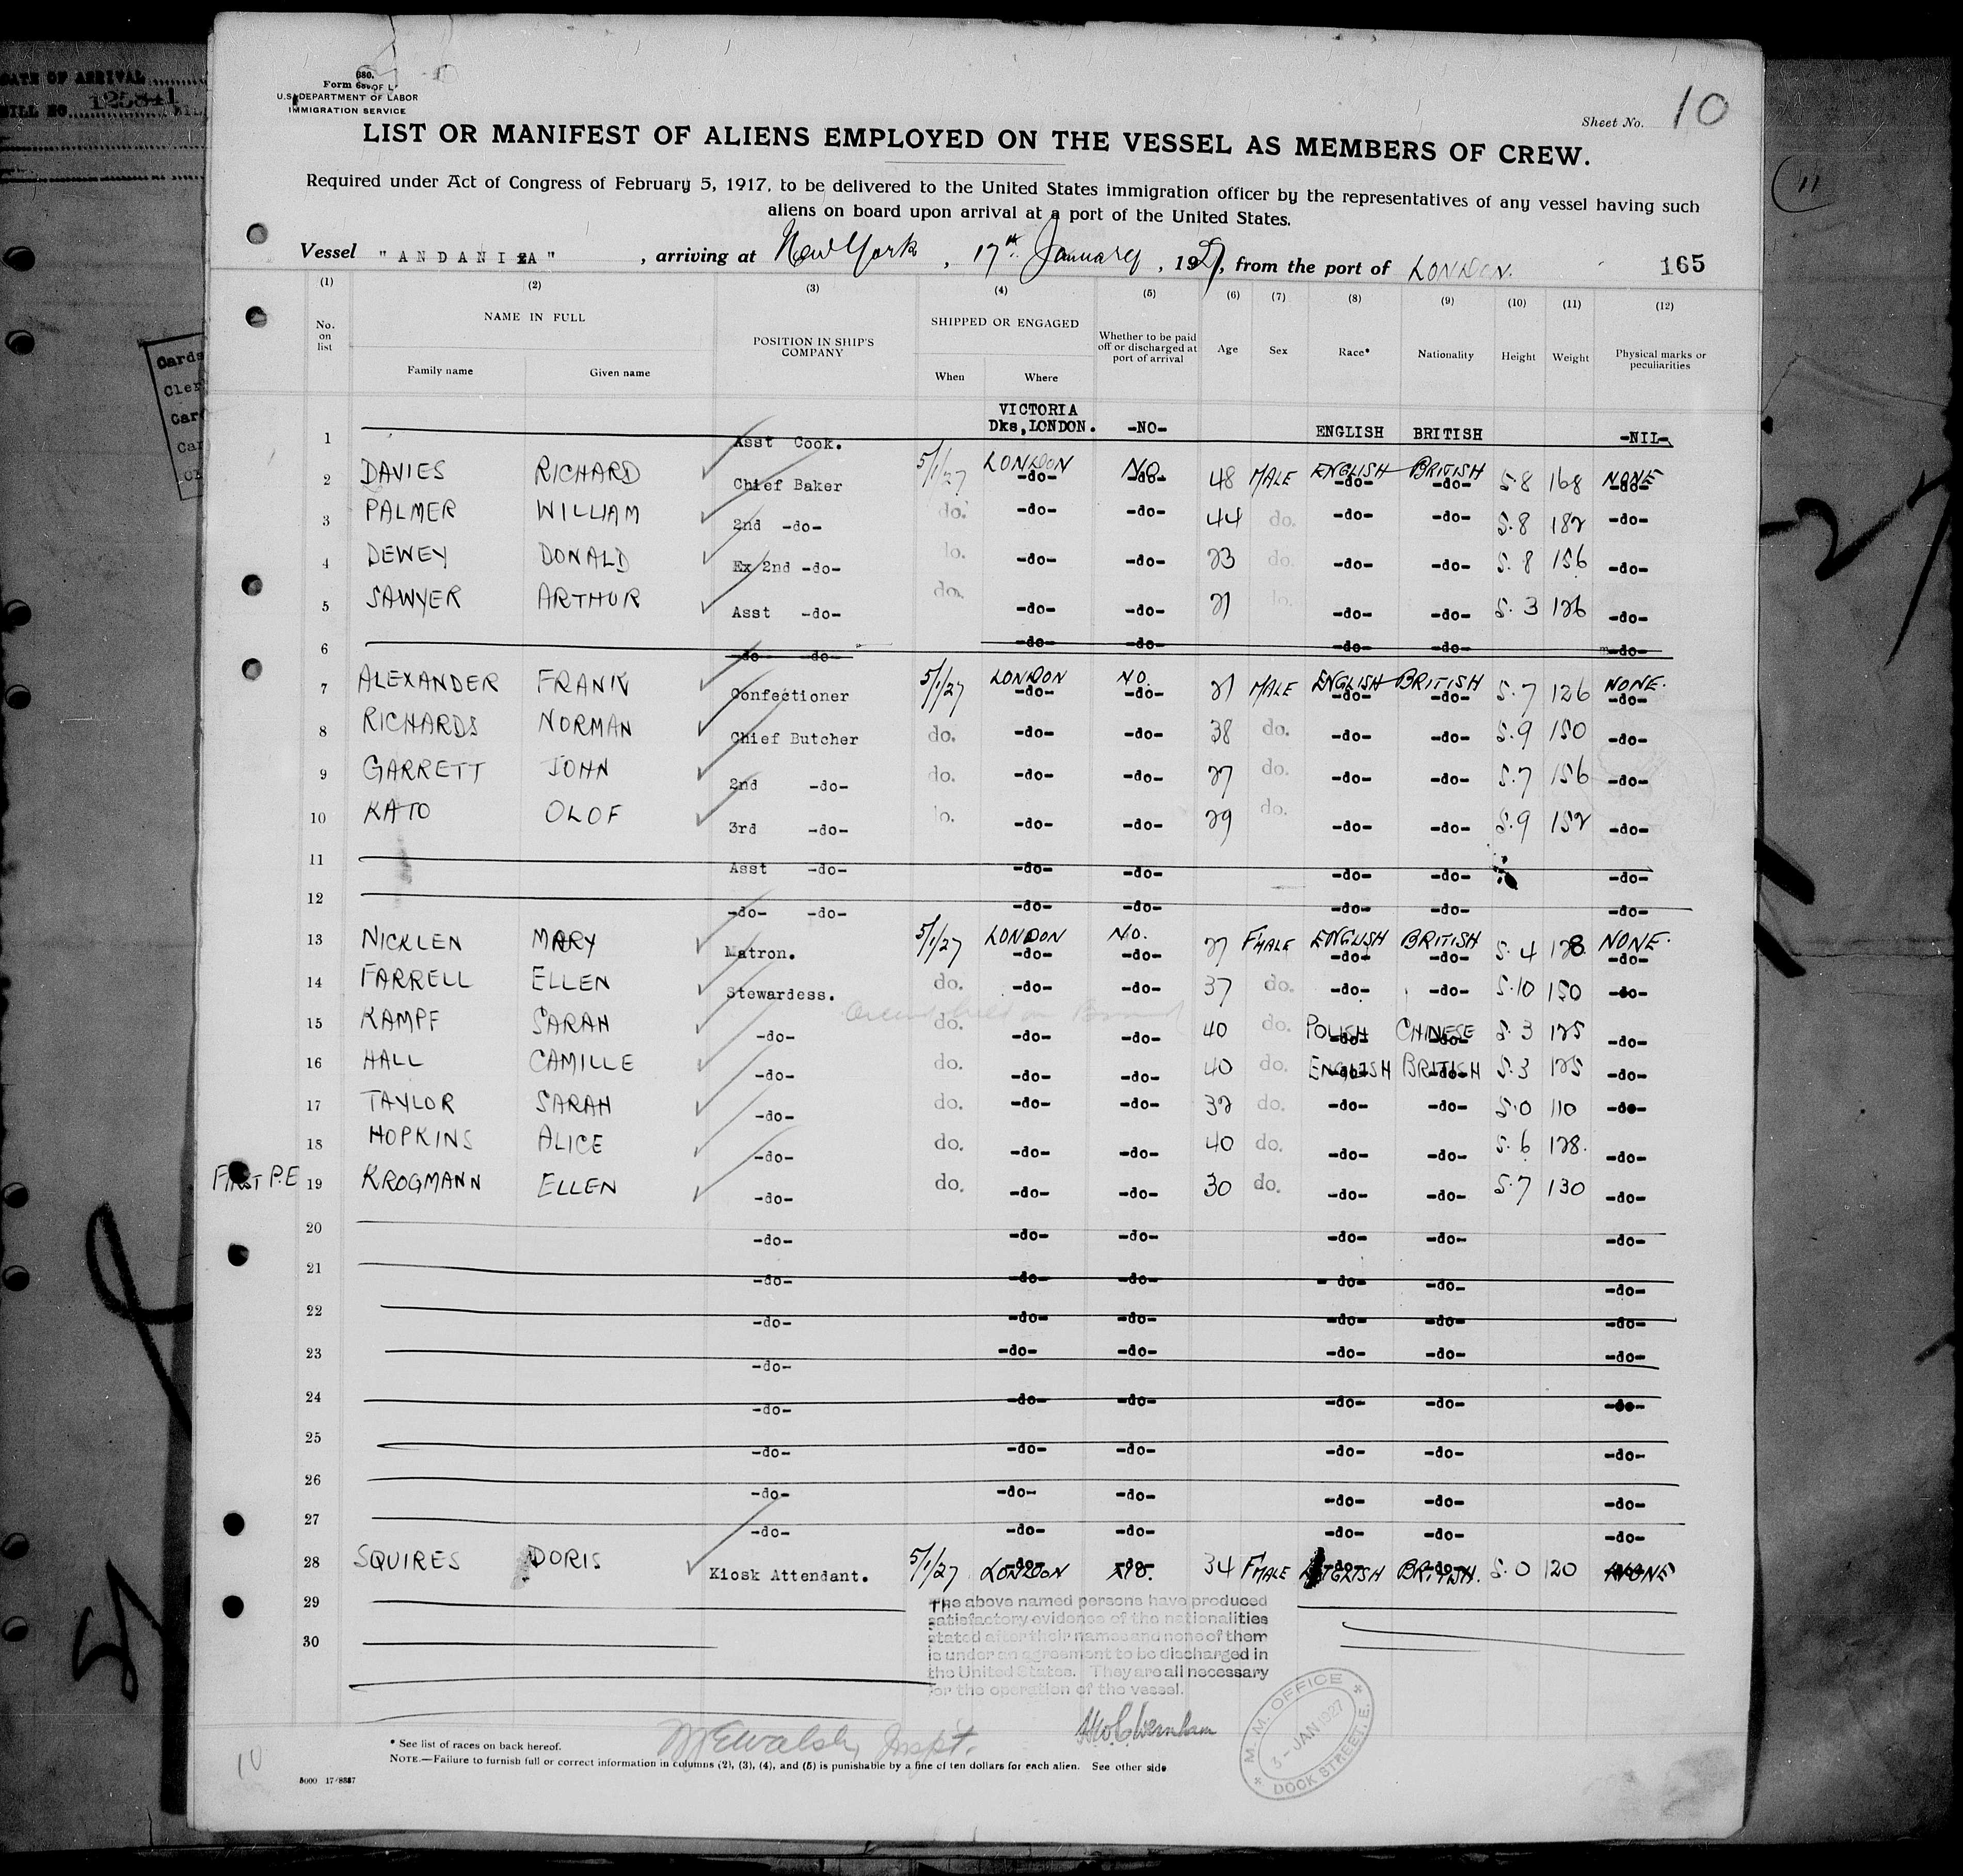 DATE OF ARRIVAL
BILL NO. 125841
680.
Form 680 OF L
U.S. DEPARTMENT OF LABOR
IMMIGRATION SERVICE
Sheet No. 10
LIST OR MANIFEST OF ALIENS EMPLOYED ON THE VESSEL AS MEMBERS OF CREW.
Required under Act of Congress of February 5, 1917, to be delivered to the United States immigration officer by the representatives of any vessel having such
aliens on board upon arrival at a port of the United States.
Vessel "ANDANIA", arriving at New York, 17th January, 1927, from the port of LONDON. 165
(1) (2) (3) (4) (5) (6) (7) (8) (9) (10) (11) (12)
No. on list NAME IN FULL POSITION IN SHIP'S COMPANY SHIPPED OR ENGAGED Whether to be paid off or discharged at port of arrival Age Sex Race* Nationality Height Weight Physical marks or peculiarities
Family name Given name When Where
VICTORIA
1 Asst Cook. Dks, LONDON. -NO- ENGLISH BRITISH -NIL-
2 DAVIES RICHARD Chief Baker 5/1/27 LONDON -do- NO -do- 48 MALE ENGLISH -do- BRITISH -do- 5.8 168 NONE -do-
3 PALMER WILLIAM 2nd -do- do. -do- -do- 44 do. -do- -do- 5.8 182 -do-
4 DEWEY DONALD Ex 2nd -do- do. -do- -do- 23 do. -do- -do- 5.8 156 -do-
5 SAWYER ARTHUR Asst -do- do. -do- -do- 21 do. -do- -do- 5.3 126 -do-
6 -do- -do- -do- -do- -do- -do- -do-
7 ALEXANDER FRANK Confectioner 5/1/27 LONDON -do- NO. -do- 21 MALE ENGLISH -do- BRITISH -do- 5.7 126 NONE. -do-
8 RICHARDS NORMAN Chief Butcher do. -do- -do- 38 do. -do- -do- 5.9 150 -do-
9 GARRETT JOHN 2nd -do- do. -do- -do- 27 do. -do- -do- 5.7 156 -do-
10 KATO OLOF 3rd -do- do. -do- -do- 29 do. -do- -do- 5.9 152 -do-
11 Asst -do- -do- -do- -do- -do- -do-
12 -do- -do- -do- -do- -do- -do- -do-
13 NICKLEN MARY Matron. 5/1/27 LONDON -do- NO. -do- 27 FMALE ENGLISH -do- BRITISH -do- 5.4 128 NONE. -do-
14 FARRELL ELLEN Stewardess. do. -do- -do- 37 do. -do- -do- 5.10 150 -do-
15 KAMPF SARAH -do- do. -do- -do- 40 do. POLISH -do- CHINESE -do- 5.3 125 -do-
16 HALL CAMILLE -do- do. -do- -do- 40 do. ENGLISH -do- BRITISH -do- 5.3 125 -do-
17 TAYLOR SARAH -do- do. -do- -do- 32 do. -do- -do- 5.0 110 -do-
18 HOPKINS ALICE -do- do. -do- -do- 40 do. -do- -do- 5.6 128. -do-
FIRST P.E 19 KROGMANN ELLEN -do- do. -do- -do- 30 do. -do- -do- 5.7 130 -do-
20 -do- -do- -do- -do- -do- -do-
21 -do- -do- -do- -do- -do- -do-
22 -do- -do- -do- -do- -do- -do-
23 -do- -do- -do- -do- -do- -do-
24 -do- -do- -do- -do- -do- -do-
25 -do- -do- -do- -do- -do- -do-
26 -do- -do- -do- -do- -do- -do-
27 -do- -do- -do- -do- -do- -do-
28 SQUIRES DORIS Kiosk Attendant. 5/1/27 LONDON -do- NO. -do- 34 FMALE ENGLISH -do- BRITISH. -do- 5.0 120 NONE
29
30
The above named persons have produced
satisfactory evidence of the nationalities
stated after their names and none of them
is under an agreement to be discharged in
the United States. They are all necessary
for the operation of the vessel.
M. M. OFFICE
3 - JAN 1927
DOCK STREET, E.
Walsh, Inspt.
10
* See list of races on back hereof.
NOTE.—Failure to furnish full or correct information in columns (2), (3), (4), and (5) is punishable by a fine of ten dollars for each alien. See other side
5000 17/8887
11